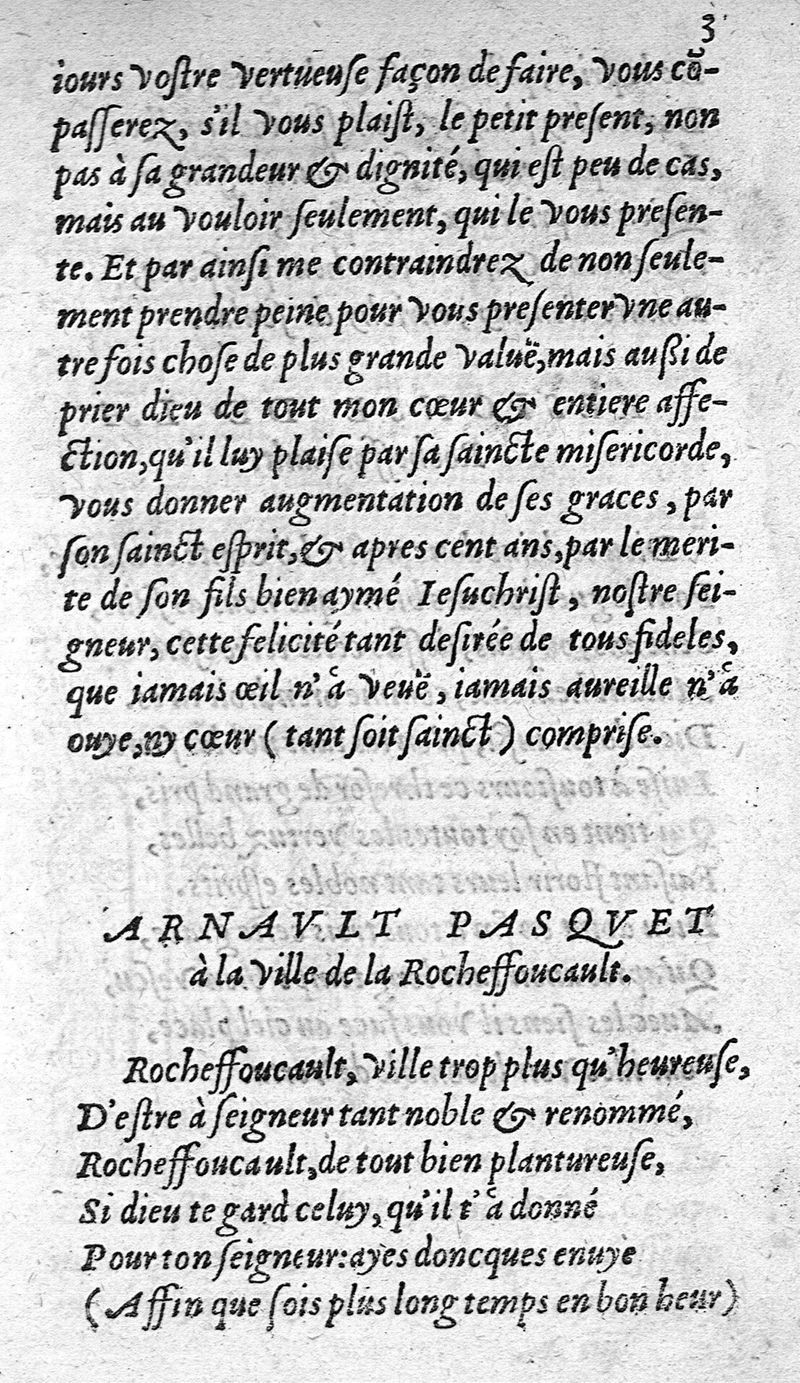 3
iours vostre vertueuse façon de faire, vous cõ-
passerez, s'il vous plaist, le petit present, non
pas à sa grandeur & dignité, qui est peu de cas,
mais au vouloir seulement, qui le vous presen-
te. Et par ainsi me contraindrez de non seule-
ment prendre peine pour vous presenter vne au-
tre fois chose de plus grande valuë, mais außi de
prier dieu de tout mon cœur & entiere affe-
ction, qu'il luy plaise par sa saincte misericorde,
vous donner augmentation de ses graces, par
son sainct esprit, & apres cent ans, par le meri-
te de son fils bien aymé Iesuchrist, nostre sei-
gneur, cette felicité tant desirée de tous fideles,
que iamais œil n'à veuë, iamais aureille n'à
ouye, ny cœur (tant soit sainct) comprise.
ARNAVLT PASQVET
à la ville de la Rocheffoucault.
Rocheffoucault, ville trop plus qu'heureuse,
D'estre à seigneur tant noble & renommé,
Rocheffoucault, de tout bien plantureuse,
Si dieu te gard celuy, qu'il t'à donné
Pour ton seigneur: ayes doncques enuye
(Affin que sois plus long temps en bon heur)